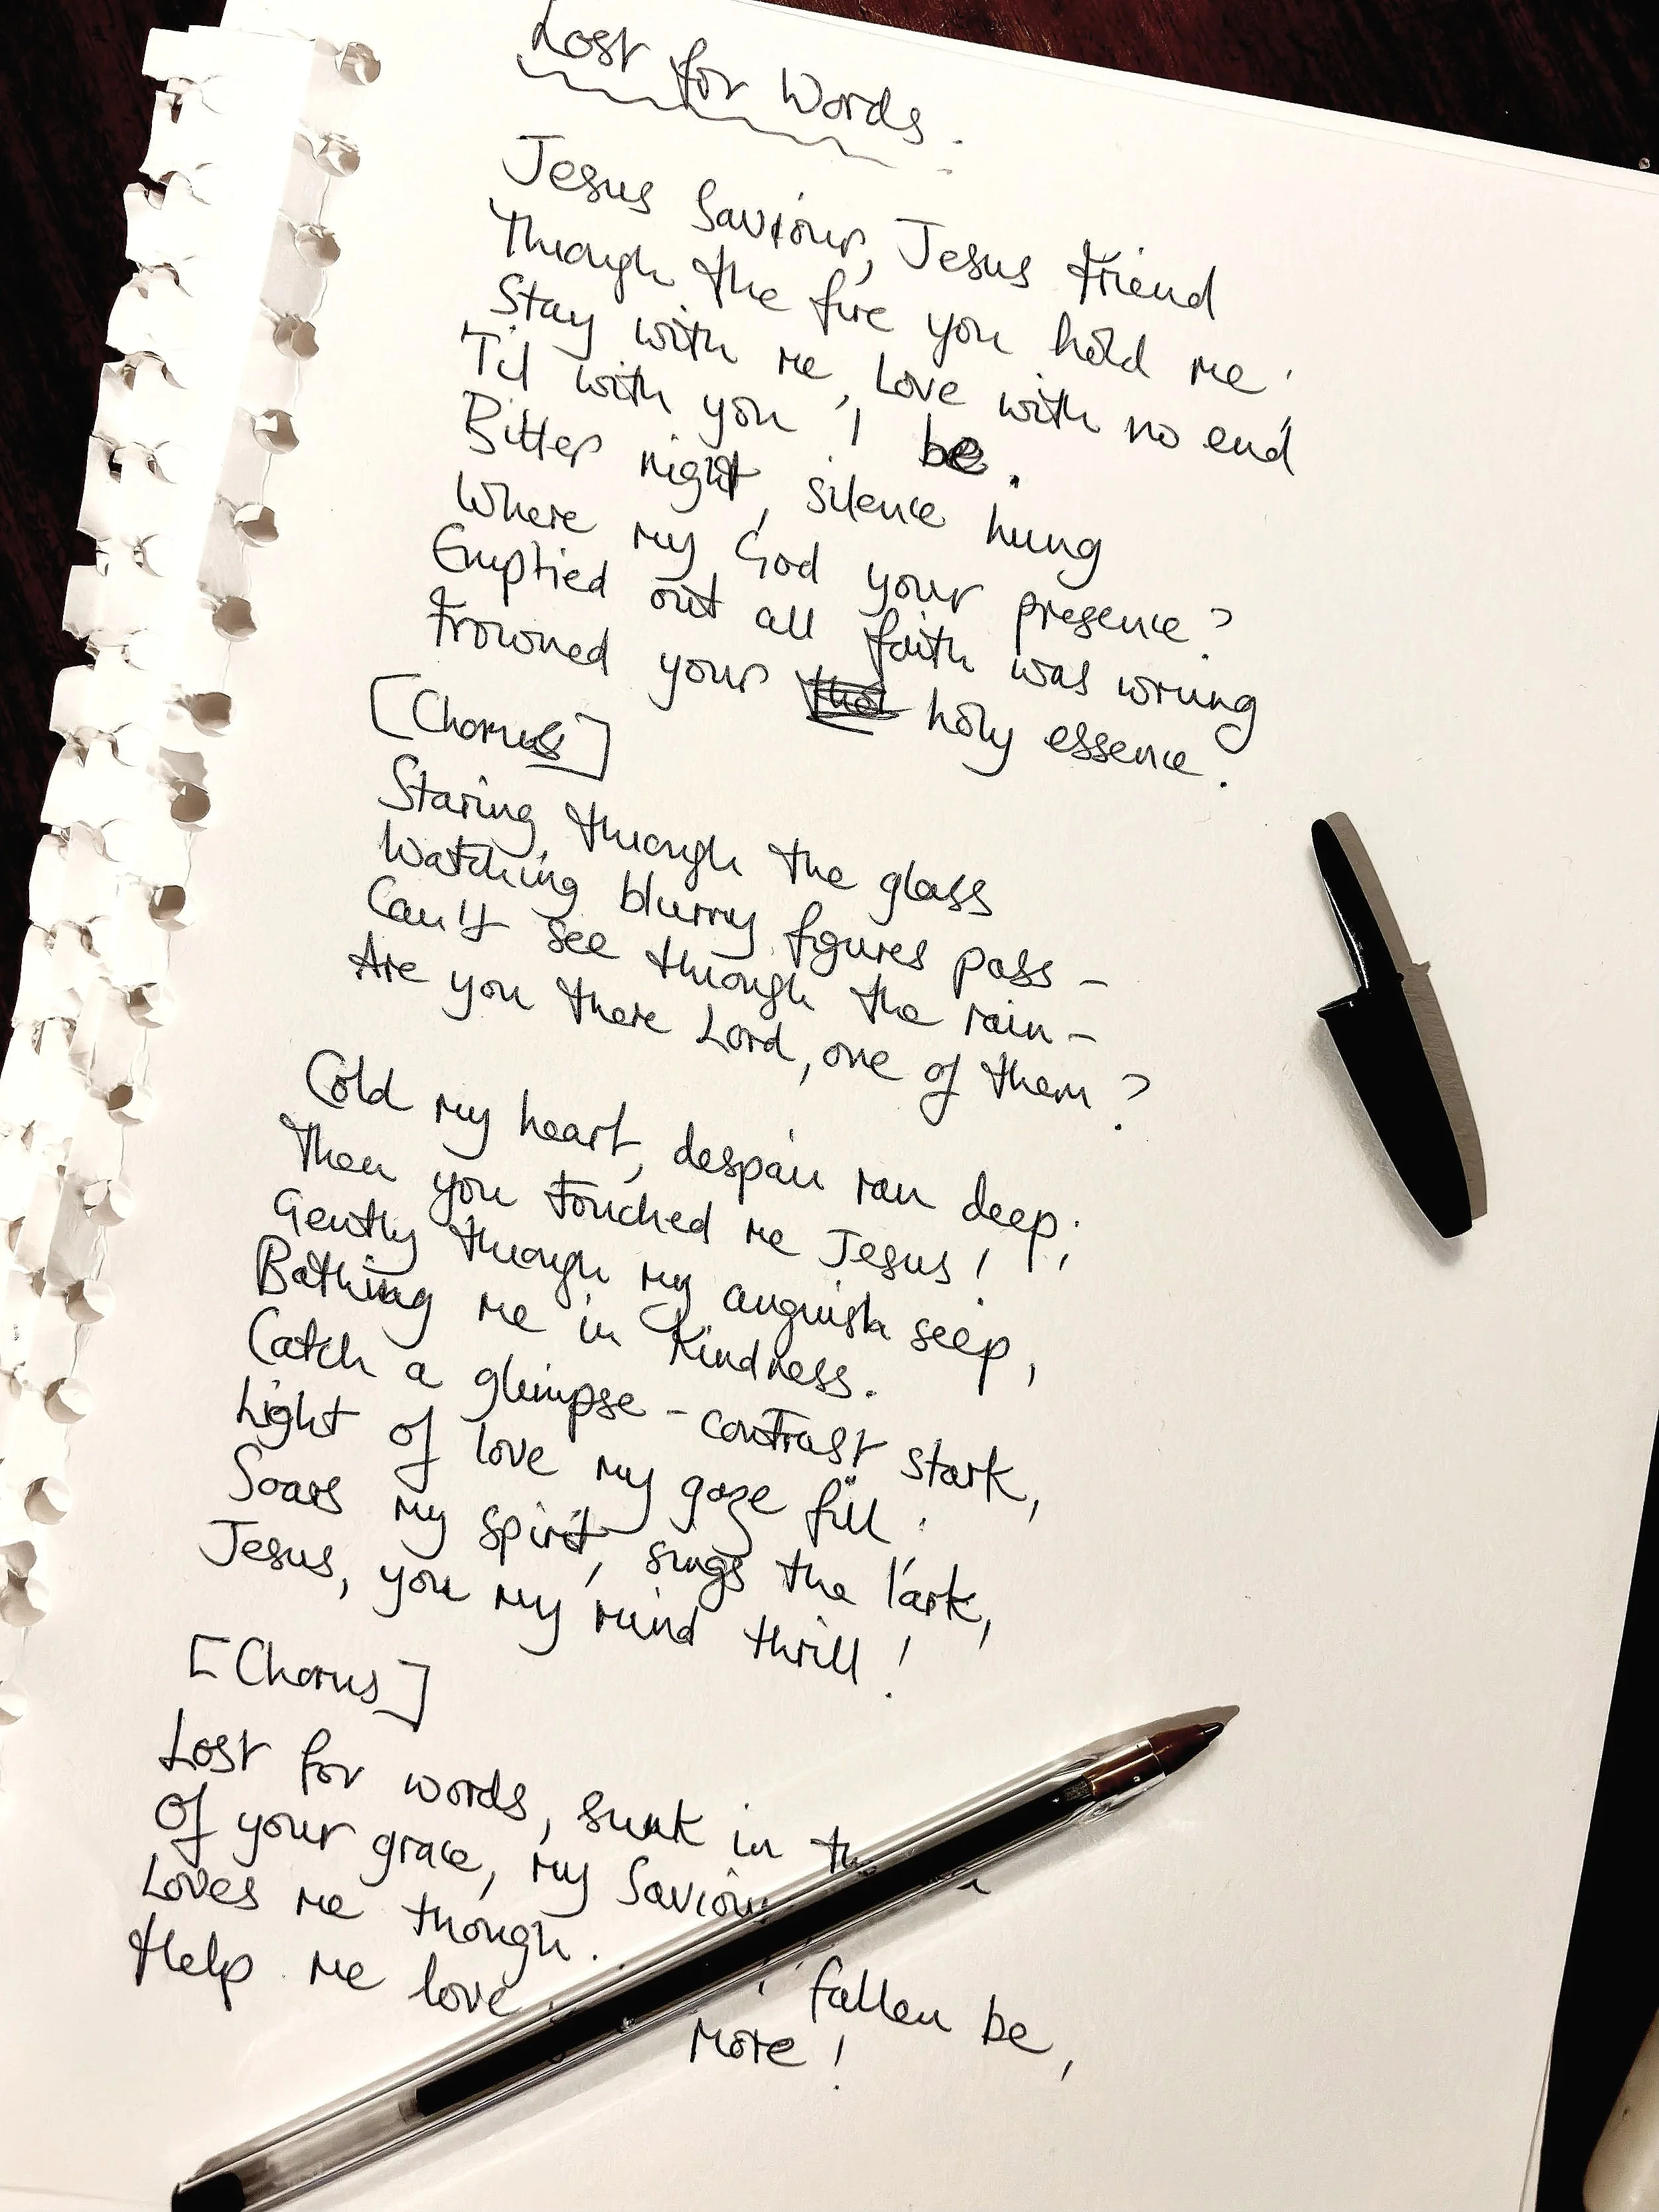 Lost for Words.
Jesus Saviour, Jesus Friend
Through the fire you hold me!
Stay with me, Love with no end,
'Til with you I be.
Bitter night, silence hung
Where my God your presence?
Emptied out all faith was wrung
Frowned your holy essence.
[Chorus]
Staring through the glass
Watching blurry figures pass -
Can't see through the rain -
Are you there Lord, one of them?
Cold my heart, despair ran deep;
Then you touched me Jesus!
Gently through my anguish seep,
Bathing me in Kindness.
Catch a glimpse - contrast stark,
Light of love my gaze fill:
Soars my spirit, sings the lark,
Jesus, you my mind thrill!
[Chorus]
Lost for words, sunk in
Of your grace, my Saviour
Loves me though. fallen be,
Help me love more!